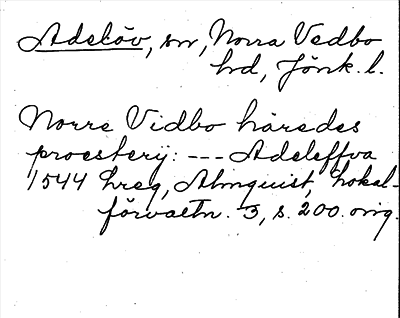 Adelöv, sn, Norra Vedbo
hd, Jönk. l.
Norre Vidbo häredes
proesterij: --- Adeleffva
1544 hreg, Almquist, Lokal-
förvaltn. 3, s. 200. orig.